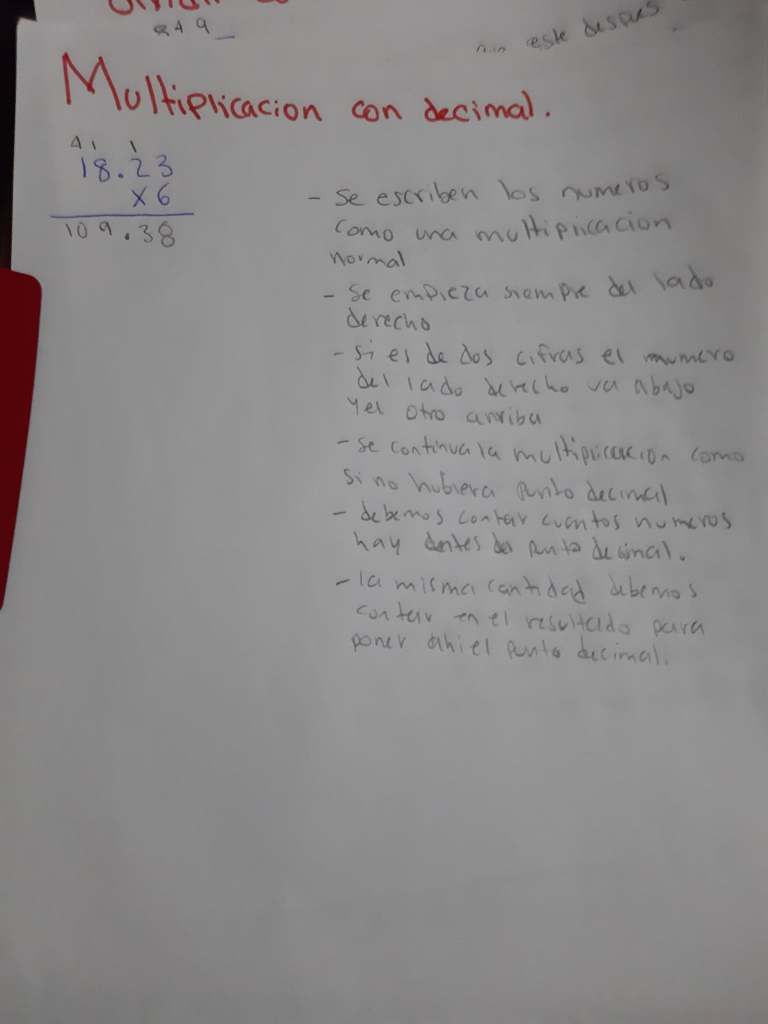 este despues
Multiplicacion con decimal.
4 1 1
18.23
x 6
109.38
- Se escriben los numeros
como una multiplicacion
normal
- Se empieza siempre del lado
derecho
- Si es de dos cifras el numero
del lado derecho va abajo
y el otro arriba
- se continua la multiplicacion como
si no hubiera punto decimal
- debemos contar cuantos numeros
hay punto decimal.
- la misma cantidad debemos
contar en el resultado para
poner ahi el punto decimal.